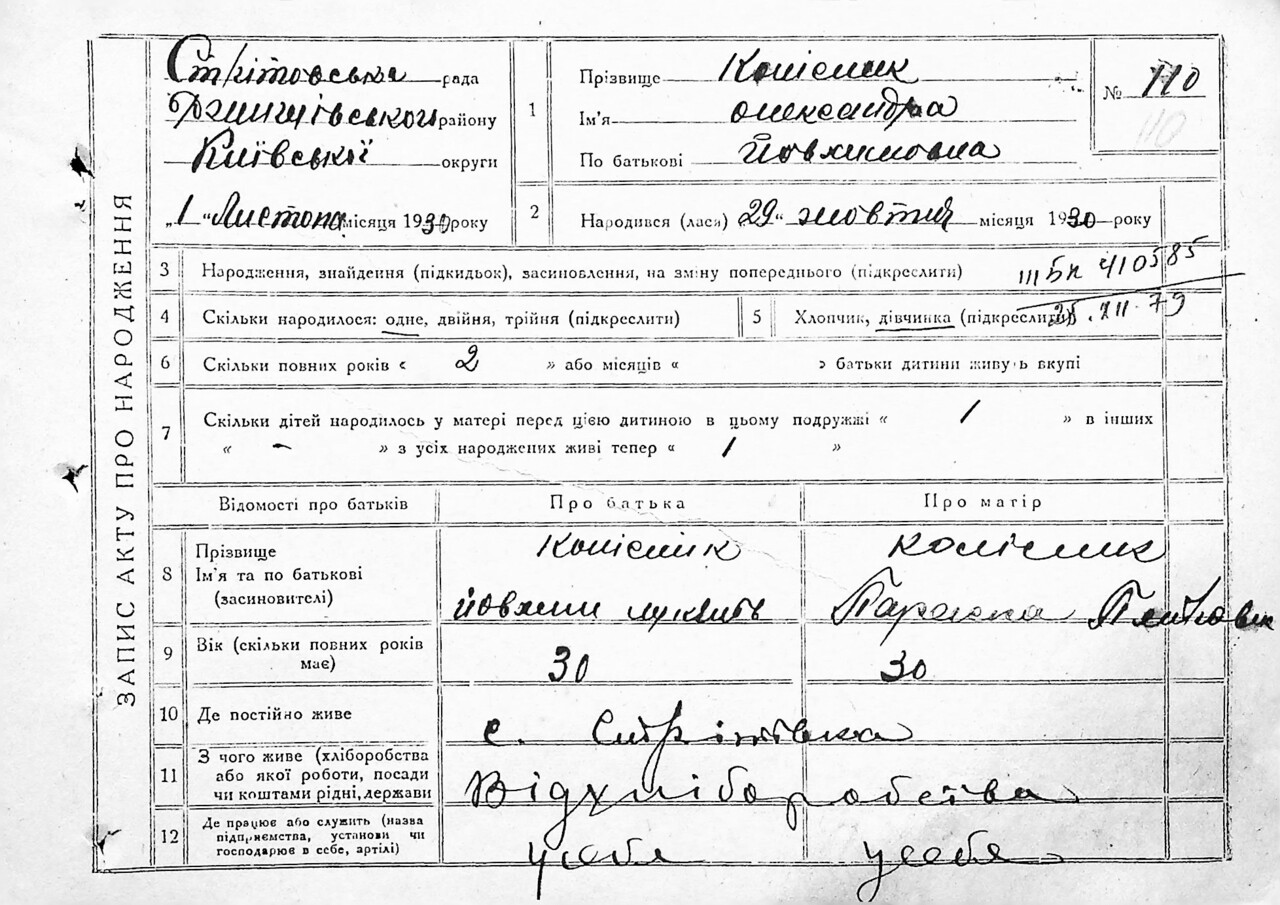 ЗАПИС АКТУ ПРО НАРОДЖЕННЯ
Стрітовська рада
Ржищівського району
Київської округи
„1 “ Листопа місяця 1930 року
1
Прізвище Колісник
Ім'я Олександра
По батькові Йовхимовна
№ 110
110
2
Народився (лася) „29“ жовтня місяця 1930 року
3 Народження, знайдення (підкидьок), засиновлення, на зміну попереднього (підкреслити)
III БК 410585
4 Скільки народилося: одне, двійня, трійня (підкреслити)
5 Хлопчик, дівчинка (підкреслити)
6 Скільки повних років « 2 » або місяців « » батьки дитини живуть вкупі
7 Скільки дітей народилось у матері перед цією дитиною в цьому подружжі « 1 » в інших
« – » з усіх народжених живі тепер « 1 »
Відомості про батьків Про батька Про матір
8 Прізвище Колісник Колісник
Ім'я та по батькові
(засиновителі) Йовхим Параска
9 Вік (скільки повних років
має) 30 30
10 Де постійно живе с. Стрітівка
11 З чого живе (хліборобства
або якої роботи, посади
чи коштами рідні, держави Від хліборобства
12 Де працює або служить (назва
підприємства, установи чи
господарює в себе, артілі) усебя усебя